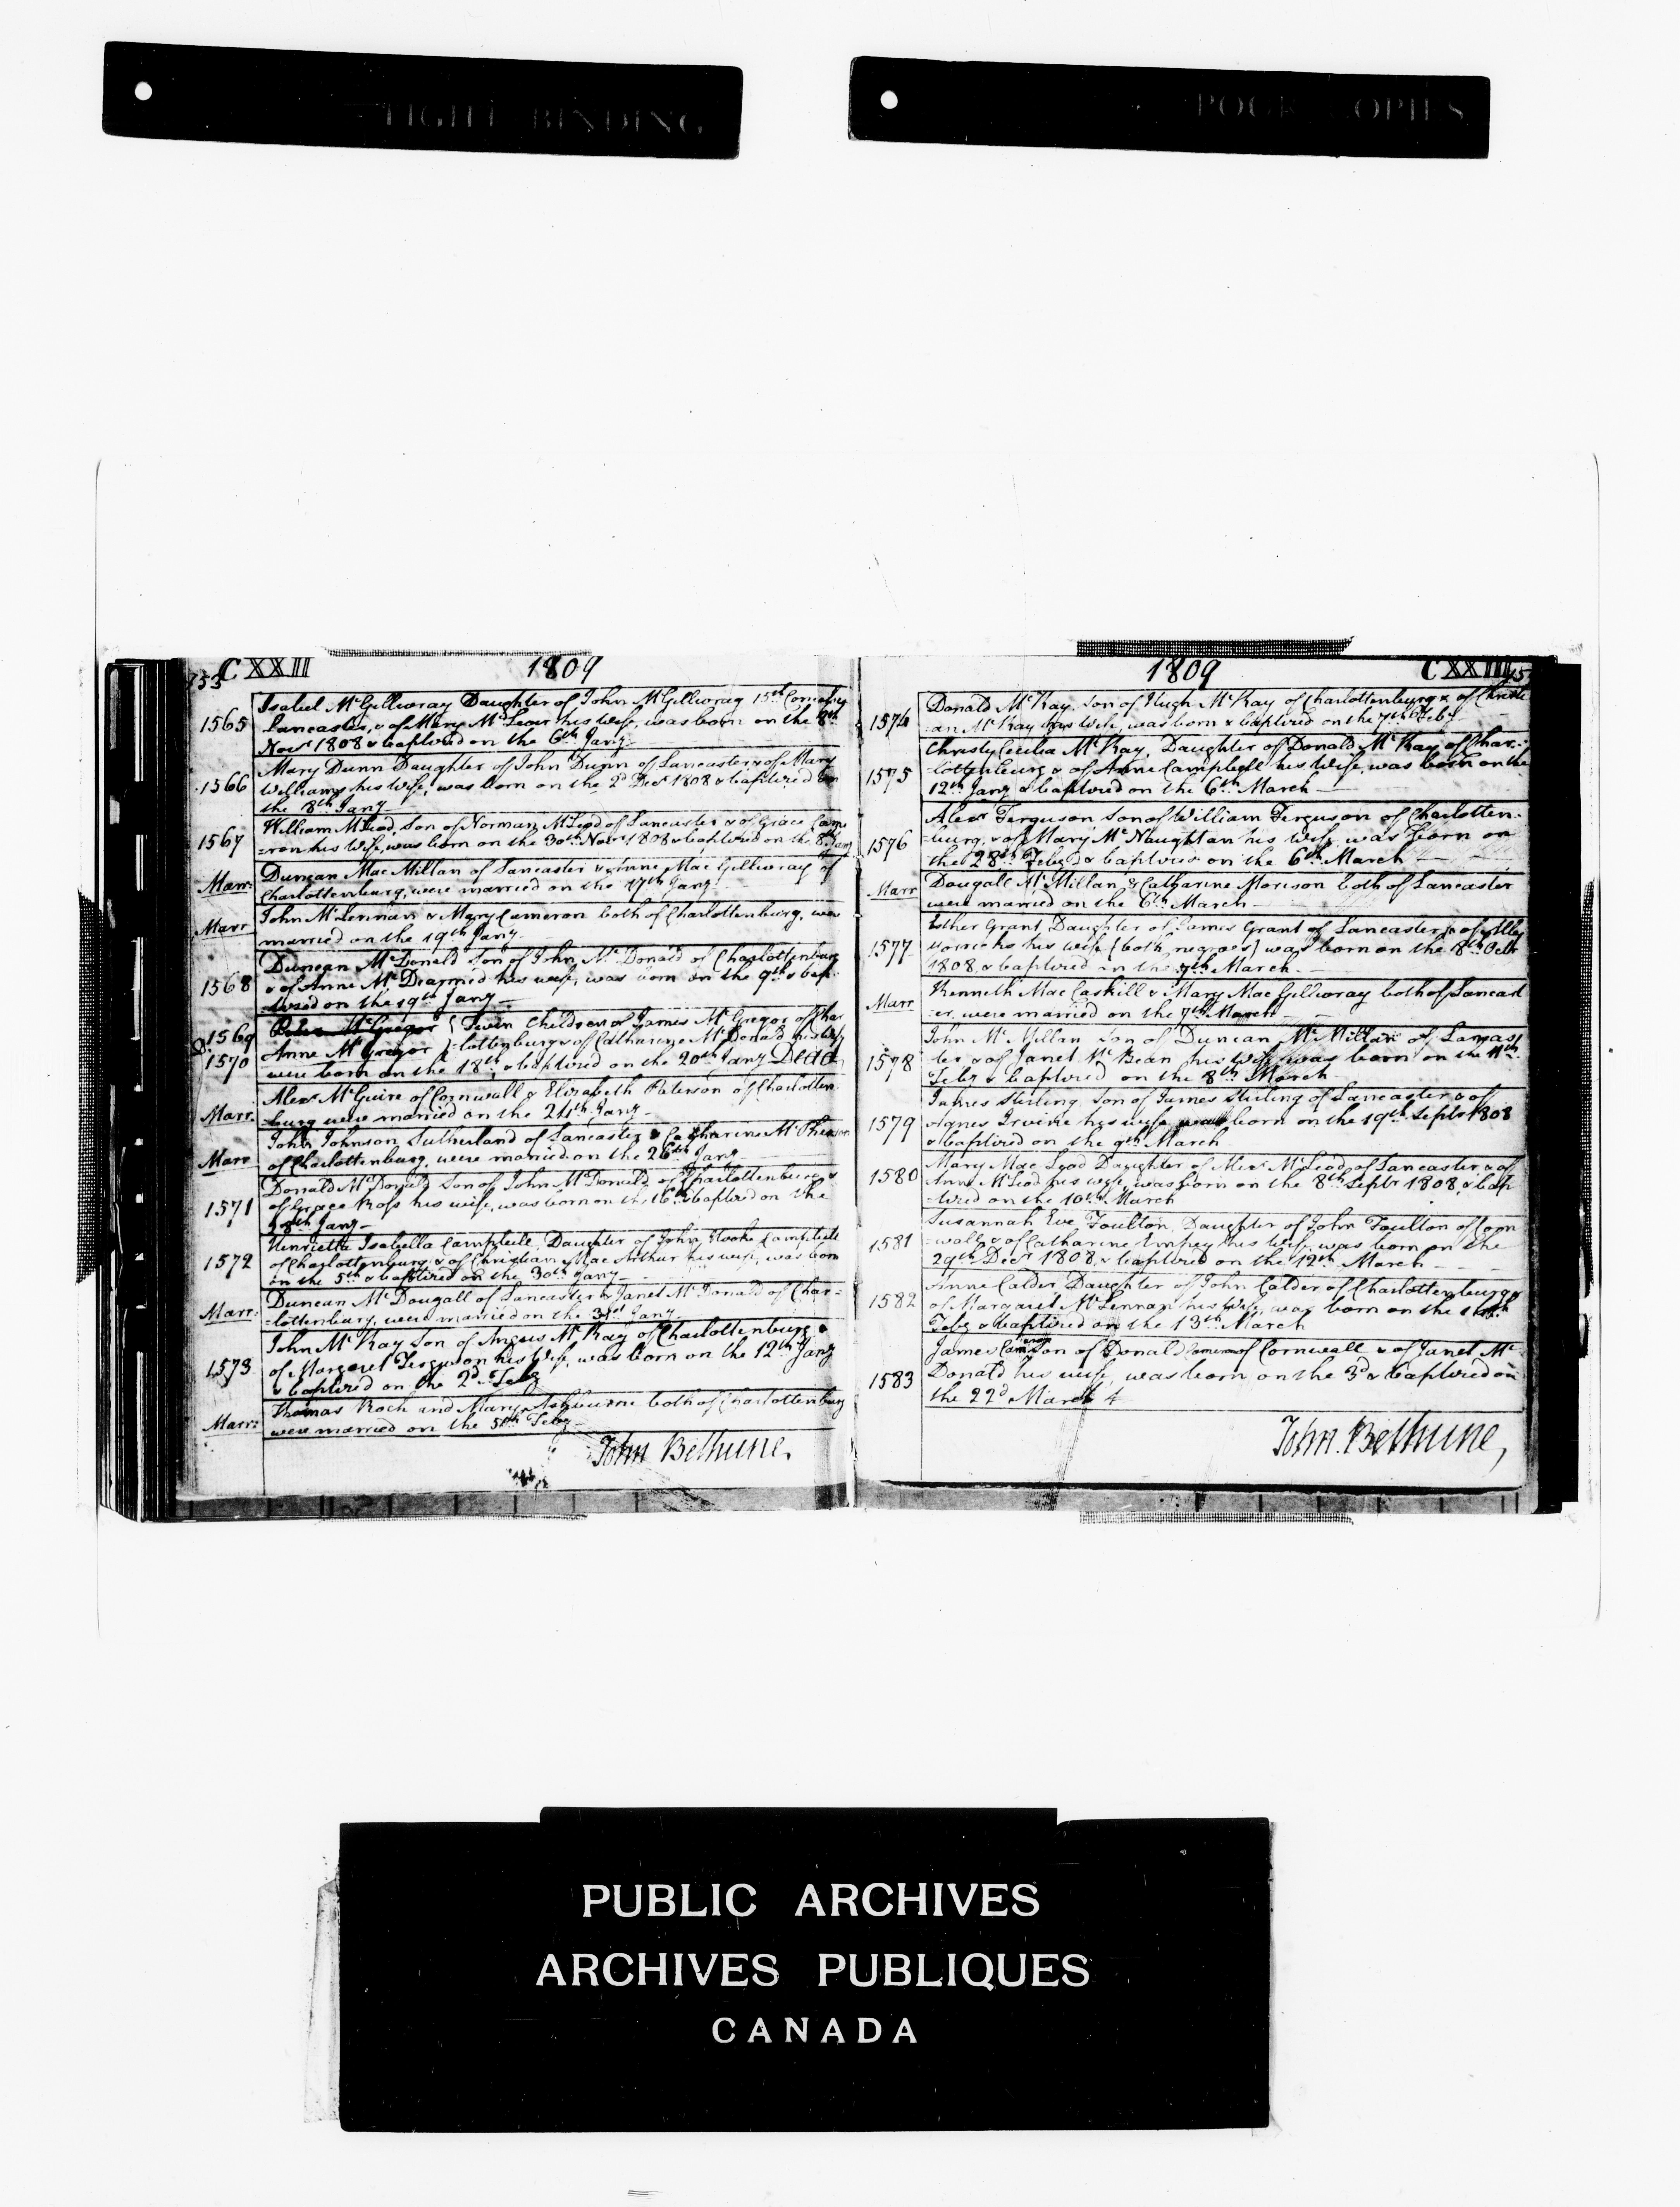 TIGHT BINDING
POOR COPIES
CXXII 1809
1565
Isabel McGillivray Daughter of John McGillivray 15th Con
Lancaster, & of Mary McLeod his Wife, was born on the 8th
Novr 1808 & baptized on the 6th Jany
1566
Mary Dunn Daughter of John Dunn of Lancaster & of Mary
Williams his Wife, was born on the 2d Decr 1808 & baptized on
the 8th Jany
1567
William McLeod, Son of Norman McLeod of Lancaster & of Grace Came
=ron his Wife, was born on the 30th Novr 1808 & baptized on the 8th Jany
Marr:
Duncan MacMillan of Lancaster & Anne MacGillivray of
Charlottenburg, were married on the 17th Jany
Marr
John McLennan & Mary Cameron both of Charlottenburg, were
married on the 19th Jany
1568
Duncan McDonald Son of John McDonald of Charlottenburg
& of Anne McDiarmid his wife, was born on the 9th & bap-
-tized on the 19th Jany
1569 Peter McGregor Twin Children of James McGregor of Char
D. 1570 Anne McGregor =lottenburg & of Catharine McDonald his Wife
were born on the 18th, & baptized on the 20th Jany Dead
Marr.
Alexr McGuire of Cornwall & Elizabeth Peterson of Charlotten-
burg were married on the 24th Jany
Marr
John Johnson Sutherland of Lancaster & Catharine McPherson
of Charlottenburg, were married on the 26th Jany
1571
Donald McDonald Son of John McDonald of Charlottenburg &
of Grace Ross his wife, was born on the 16th & baptized on the
28th Jany
1572
Henrietta Isabella Campbell, Daughter of John Hooke Campbell
of Charlottenburg & of Christian MacArthur his wife, was born
on the 5th & baptized on the 30th Jany
Marr:
Duncan McDougall of Lancaster & Janet McDonald of Char=
=lottenburg, were married on the 31st Jany
1573
John McKay Son of Angus McKay of Charlottenburg &
of Margaret Ferguson his Wife, was born on the 12th Jany
& baptized on the 2d Feby
Marr:
Thomas Roch and Mary Ashburne both of Charlottenburg
were married on the 5th Feby
John Bethune,
1809 CXXIII
1574
Donald McKay, Son of Hugh McKay of Charlottenburg & of Christi
-an McKay his Wife, was born & baptized on the 7th Feby
1575
Christy Cecilia McKay, Daughter of Donald McKay of Char-
-lottenburg & of Anne Campbell his Wife, was born on the
12th Jany & baptized on the 6th March
1576
Alexr Ferguson Son of William Ferguson of Charlotten-
-burg, & of Mary McNaughtan his Wife, was born on
the 28th Feby & baptized on the 6th March
Marr
Dougall McMillan & Catharine Morison both of Lancaster
were married on the 6th March
1577
Esther Grant, Daughter of James Grant of Lancaster & of
his wife (both negroes) was born on the 8th Octr
1808, & baptized on the 7th March
Marr
Kenneth MacCaskill & Mary MacGillivray both of Lancast
-er, were married on the 7th March
1578
John McMillan Son of Duncan McMillan of Lancas
ter & of Janet McBean his Wife was born on the 11th
Feby & baptized on the 8th March
1579
James Stirling Son of James Stirling of Lancaster & of
Agnes Irvine his wife, was born on the 19th Septr 1808
& baptized on the 9th March
1580
Mary MacLeod Daughter of Alexr McLeod of Lancaster & of
Anne McLeod his wife, was born on the 8th Septr 1808, & bap
-tized on the 10th March
1581
Susannah Eve Foulton, Daughter of John Foulton of Corn
-wall & of Catharine Empey his wife was born on the
29th Decr 1808, & baptized on the 12th March
1582
Anne Calder Daughter of John Calder of Charlottenburg &
of Margaret McLennan his Wife, was born on the
Feby & baptized on the 13th March
1583
James Cameron Son of Donald Cameron of Cornwall & of Janet Mc
Donald his wife, was born on the 3d & baptized on
the 22d March
John Bethune,
PUBLIC ARCHIVES
ARCHIVES PUBLIQUES
CANADA